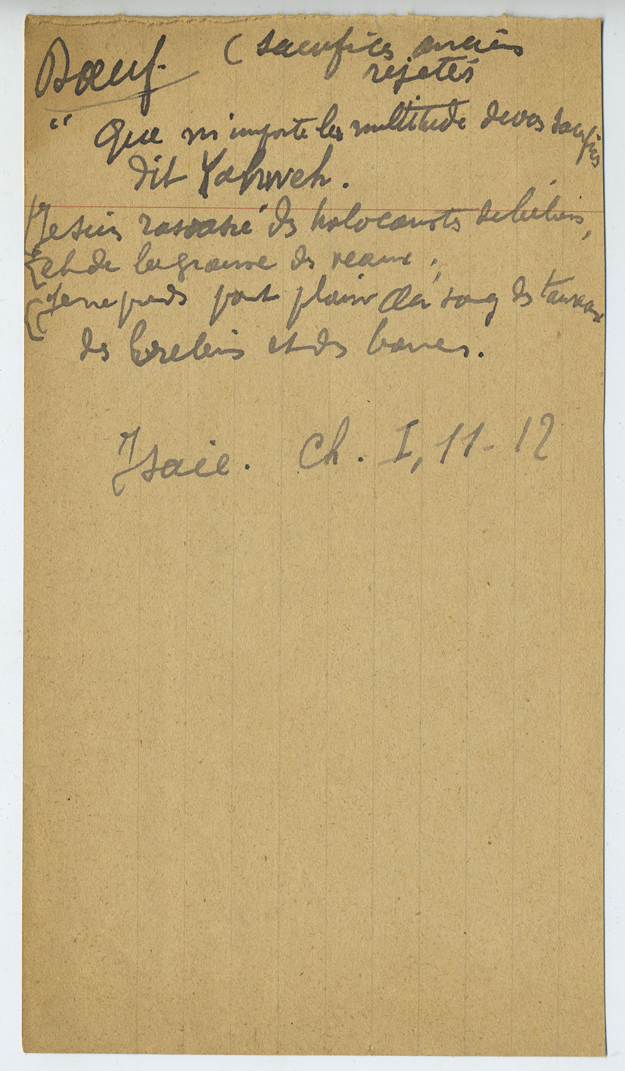 Bœuf. (sacrifices anciens
rejetés
" Que m'importe la multitude de vos sacrifices
dit Yahweh.
Je suis rassasié des holocausts de béliers,
et de la graisse de veaux ;
Je ne prends point plaisir au sang des taureaux
des brebis et des boucs.
Isaie. Ch. I, 11-12